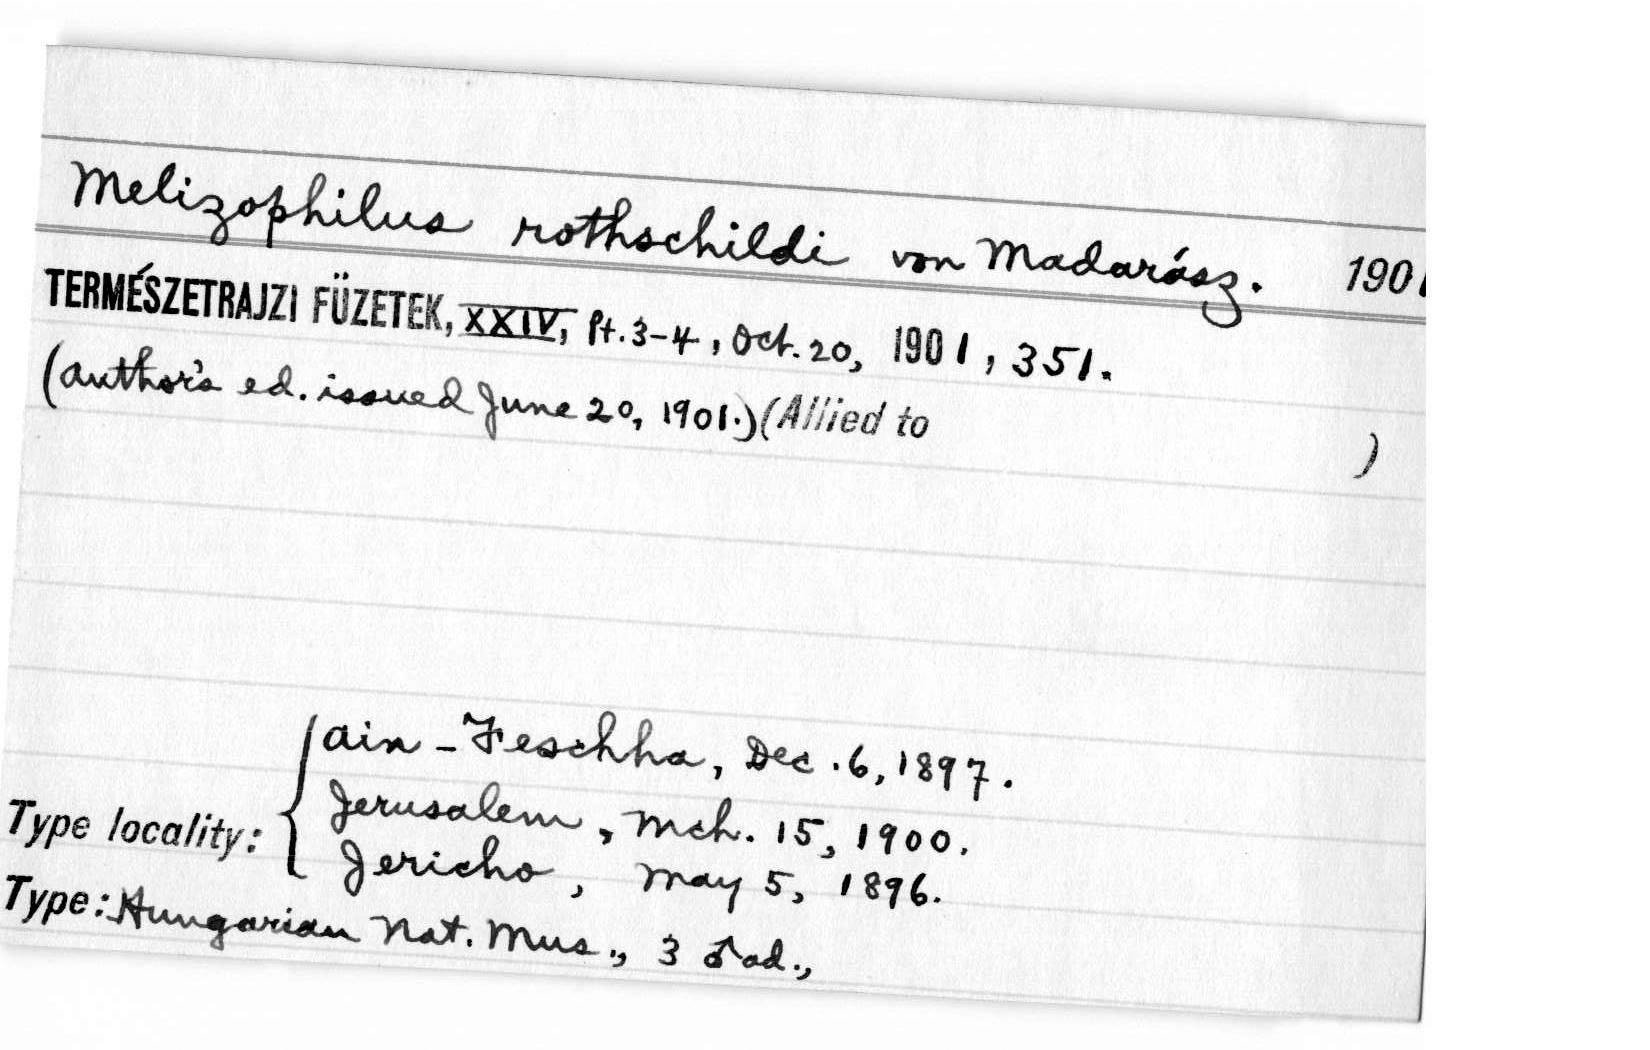 Melizophilus rothschildi von Madarász. 1901
TERMÉSZETRAJZI FÜZETEK, XXIV, Pt. 3-4, Oct. 20, 1901, 351.
(Author's ed. issued June 20, 1901.) (Allied to )
Ain-Feschha, Dec. 6, 1897.
Type locality: { Jerusalem, Mch. 15, 1900.
Jericho, May 5, 1896.
Type: Hungarian Nat. Mus., 3 ♂ ad.,